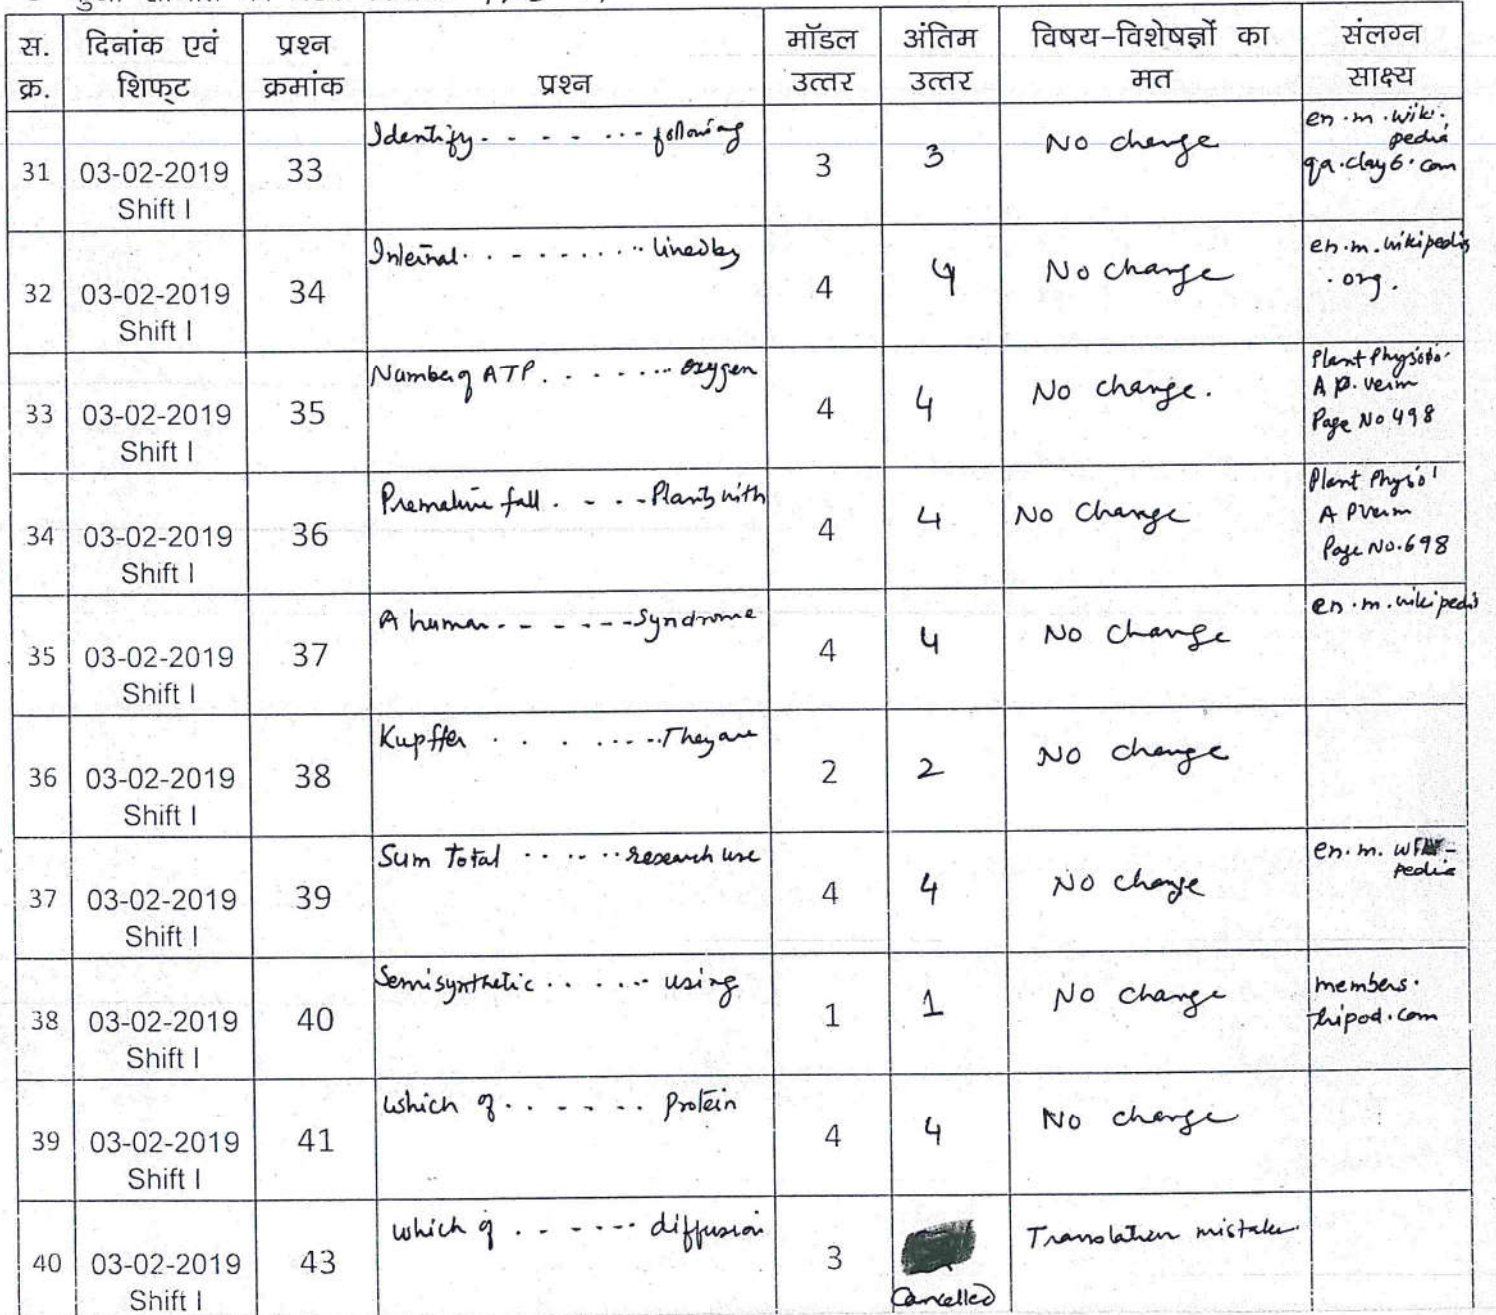 स. क्र. | दिनांक एवं शिफ्ट | प्रश्न क्रमांक | प्रश्न | मॉडल उत्तर | अंतिम उत्तर | विषय-विशेषज्ञों का मत | संलग्न साक्ष्य
31 | 03-02-2019 Shift I | 33 | Identify - - - - ... following | 3 | 3 | No change | en.m.wikipedia qa.clay6.com
32 | 03-02-2019 Shift I | 34 | Internal . . - . . . . . lined by | 4 | 4 | No change | en.m.wikipedia .org.
33 | 03-02-2019 Shift I | 35 | Number of ATP . . . . . . . oxygen | 4 | 4 | No change. | Plant Physio. A P. Verm Page No 498
34 | 03-02-2019 Shift I | 36 | Premature fall . - - - Plants with | 4 | 4 | No Change | Plant Physio A P Verm Page No.698
35 | 03-02-2019 Shift I | 37 | A human - - - - - - Syndrome | 4 | 4 | No Change | en.m.wikipedia
36 | 03-02-2019 Shift I | 38 | Kupffer . . . . . . . They are | 2 | 2 | No change
37 | 03-02-2019 Shift I | 39 | Sum Total . . . . . . research use | 4 | 4 | No change | en.m. pedia
38 | 03-02-2019 Shift I | 40 | Semisynthetic . . . . . . using | 1 | 1 | No change | members. tripod.com
39 | 03-02-2019 Shift I | 41 | which of . . - - . . Protein | 4 | 4 | No change
40 | 03-02-2019 Shift I | 43 | which of . - - - - - diffusion | 3 | Cancelled | Translation mistake.